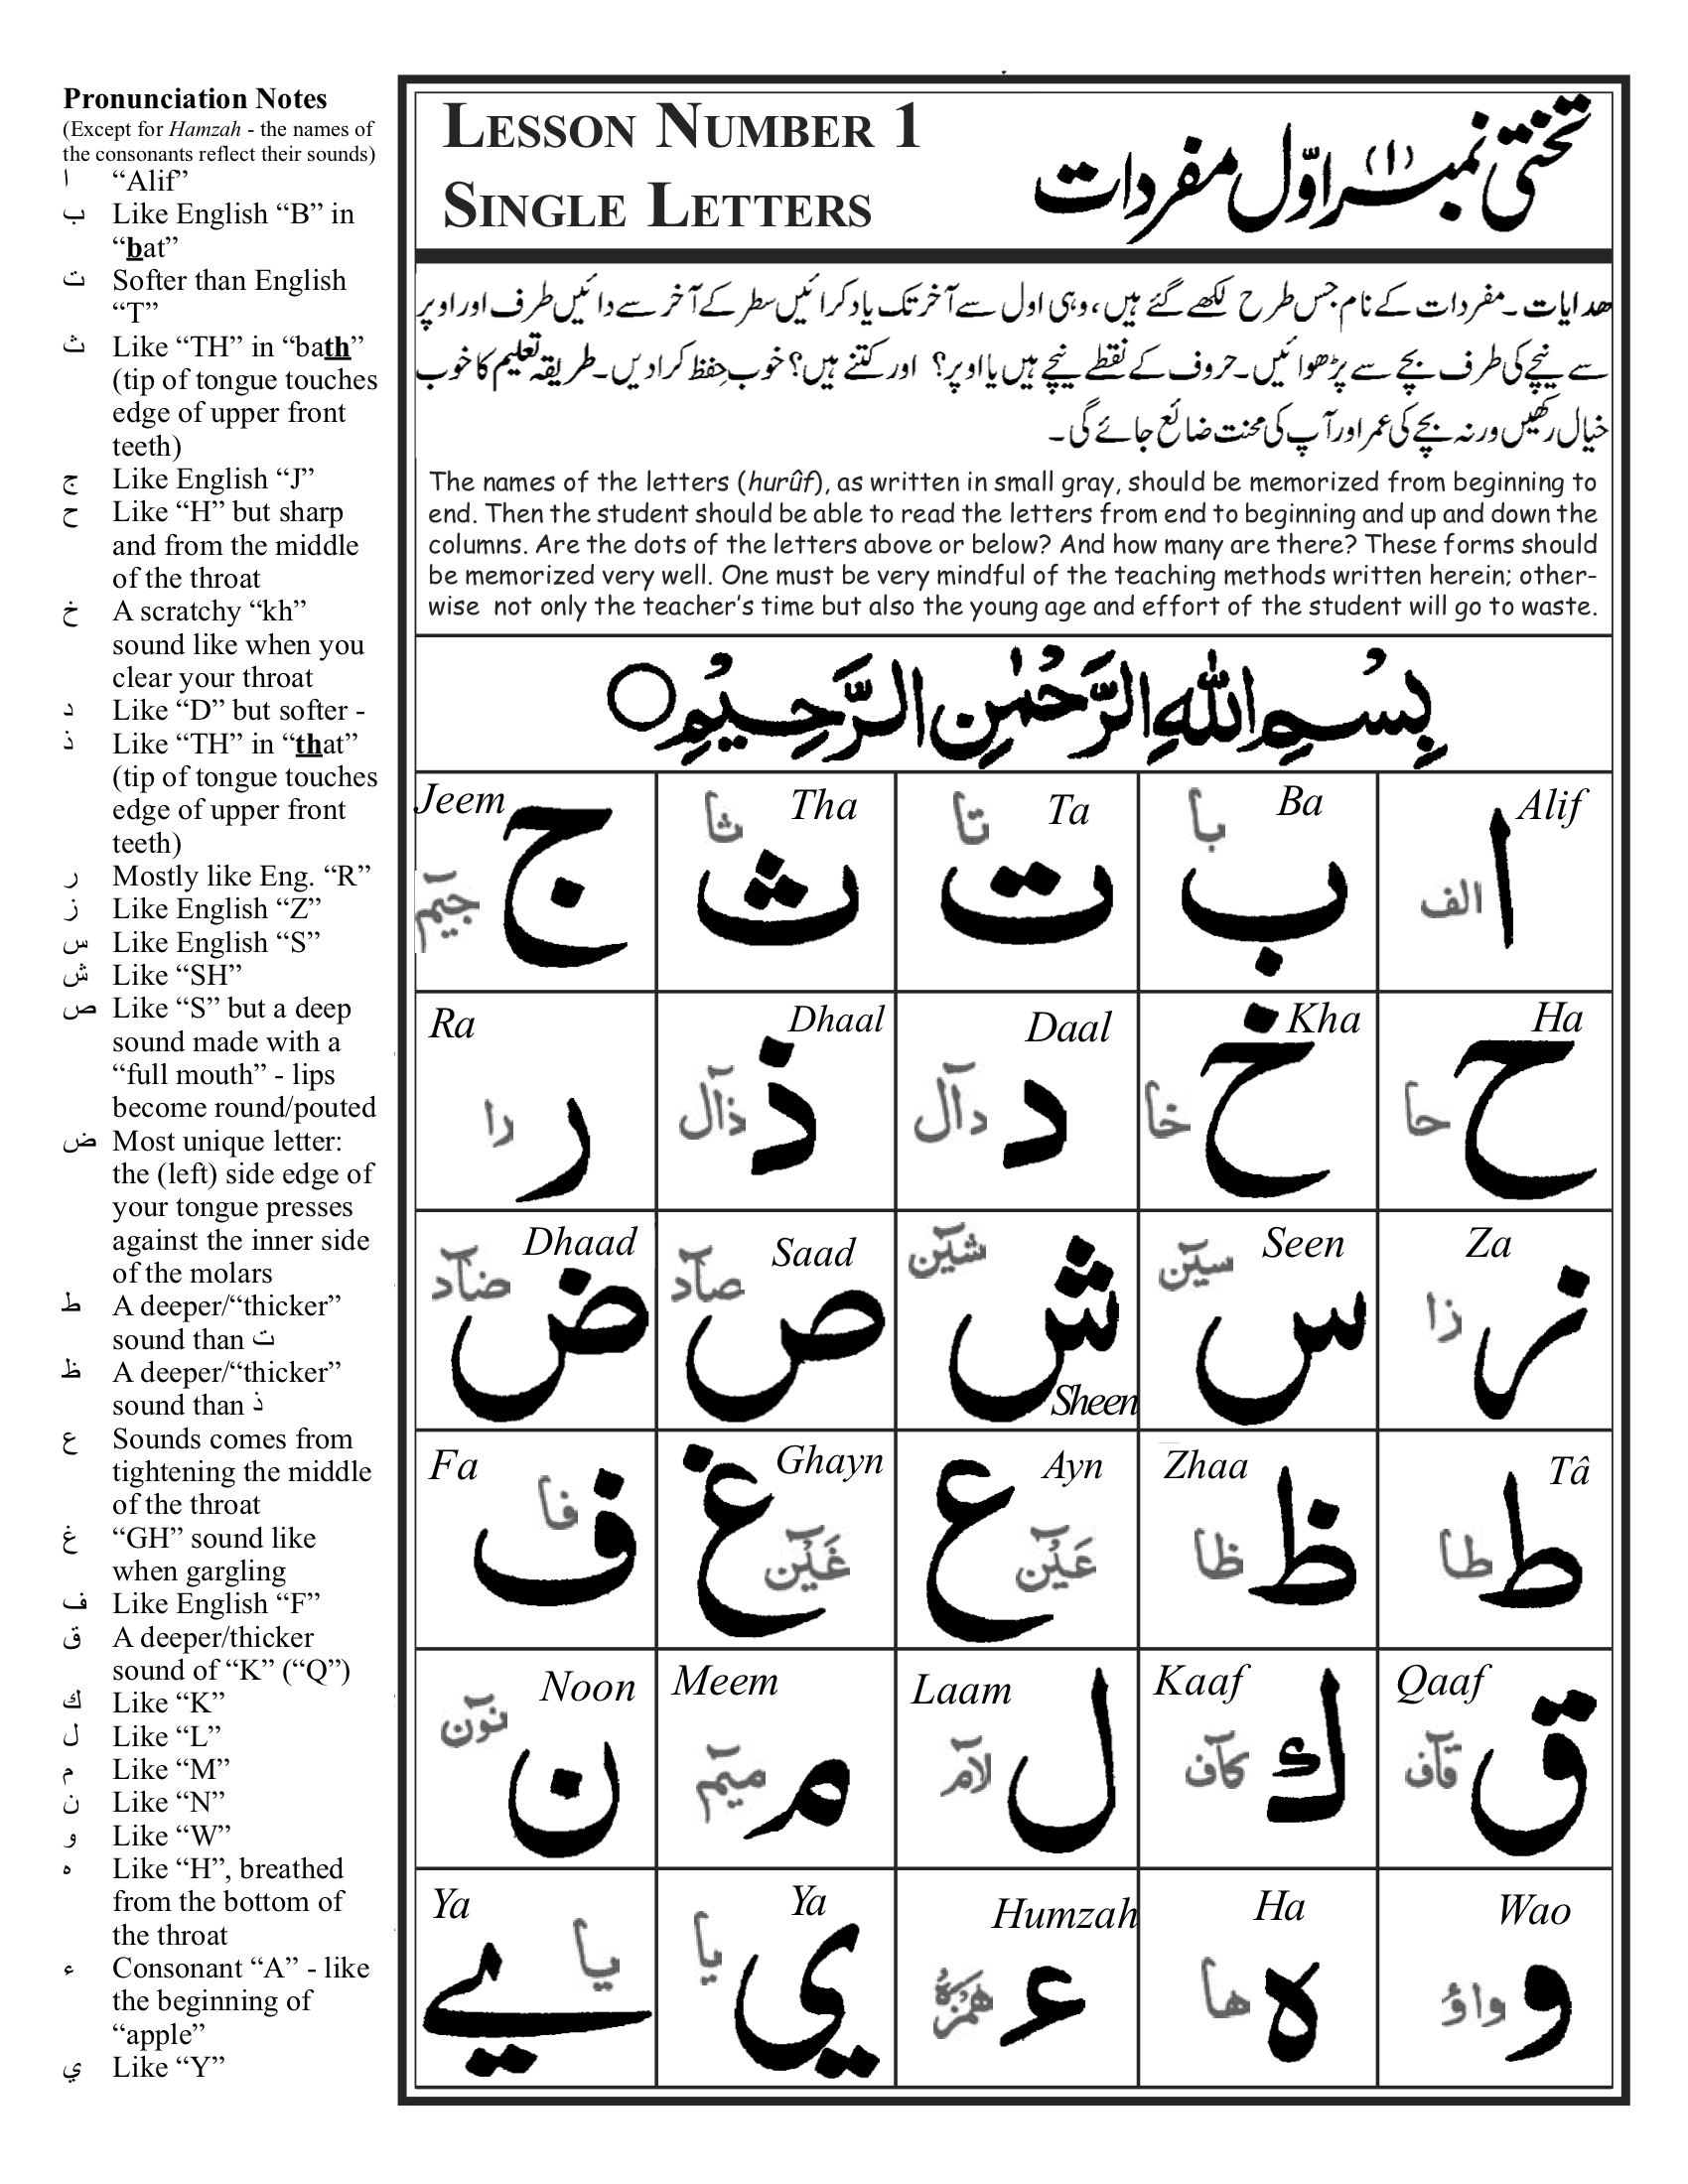 Pronunciation Notes
(Except for Hamzah - the names of
the consonants reflect their sounds)
ا “Alif”
ب Like English “B” in
“bat”
ت Softer than English
“T”
ث Like “TH” in “bath”
(tip of tongue touches
edge of upper front
teeth)
ج Like English “J”
ح Like “H” but sharp
and from the middle
of the throat
خ A scratchy “kh”
sound like when you
clear your throat
د Like “D” but softer -
ذ Like “TH” in “that”
(tip of tongue touches
edge of upper front
teeth)
ر Mostly like Eng. “R”
ز Like English “Z”
س Like English “S”
ش Like “SH”
ص Like “S” but a deep
sound made with a
“full mouth” - lips
become round/pouted
ض Most unique letter:
the (left) side edge of
your tongue presses
against the inner side
of the molars
ط A deeper/“thicker”
sound than ت
ظ A deeper/“thicker”
sound than ذ
ع Sounds comes from
tightening the middle
of the throat
غ “GH” sound like
when gargling
ف Like English “F”
ق A deeper/thicker
sound of “K” (“Q”)
ك Like “K”
ل Like “L”
م Like “M”
ن Like “N”
و Like “W”
ه Like “H”, breathed
from the bottom of
the throat
ء Consonant “A” - like
the beginning of
“apple”
ي Like “Y”
LESSON NUMBER 1
SINGLE LETTERS
تختی نمبر (۱) اوّل مفردات
ھدایات ۔ مفردات کے نام جس طرح لکھے گئے ہیں، وہی اول سے آخر تک یاد کرائیں سطر کے آخر سے دائیں طرف اور اوپر
سے نیچے کی طرف بچے سے پڑھوائیں۔ حروف کے نقطے نیچے ہیں یا اوپر؟ اور کتنے ہیں؟ خوب حفظ کرا دیں۔ طریقہ تعلیم کا خوب
خیال رکھیں ورنہ بچے کی عمر اور آپ کی محنت ضائع جائے گی۔
The names of the letters (hurûf), as written in small gray, should be memorized from beginning to
end. Then the student should be able to read the letters from end to beginning and up and down the
columns. Are the dots of the letters above or below? And how many are there? These forms should
be memorized very well. One must be very mindful of the teaching methods written herein; other-
wise not only the teacher’s time but also the young age and effort of the student will go to waste.
بِسْمِ اللّٰهِ الرَّحْمٰنِ الرَّحِيْمِ
Alif ا الف
Ba ب با
Ta ت تا
Tha ث ثا
Jeem ج جيٓم
Ha ح حا
Kha خ خا
Daal د دآل
Dhaal ذ ذآل
Ra ر را
Za ز زا
Seen س سيٓن
Sheen ش شيٓن
Saad ص صآد
Dhaad ض ضآد
Tâ ط طا
Zhaa ظ ظا
Ayn ع عَيْٓن
Ghayn غ غَيْٓن
Fa ف فا
Qaaf ق قآف
Kaaf ك كآف
Laam ل لآم
Meem م ميٓم
Noon ن نوٓن
Wao و واؤ
Ha ه ها
Humzah ء هَمْزَهْ
Ya ي يا
Ya ے يا